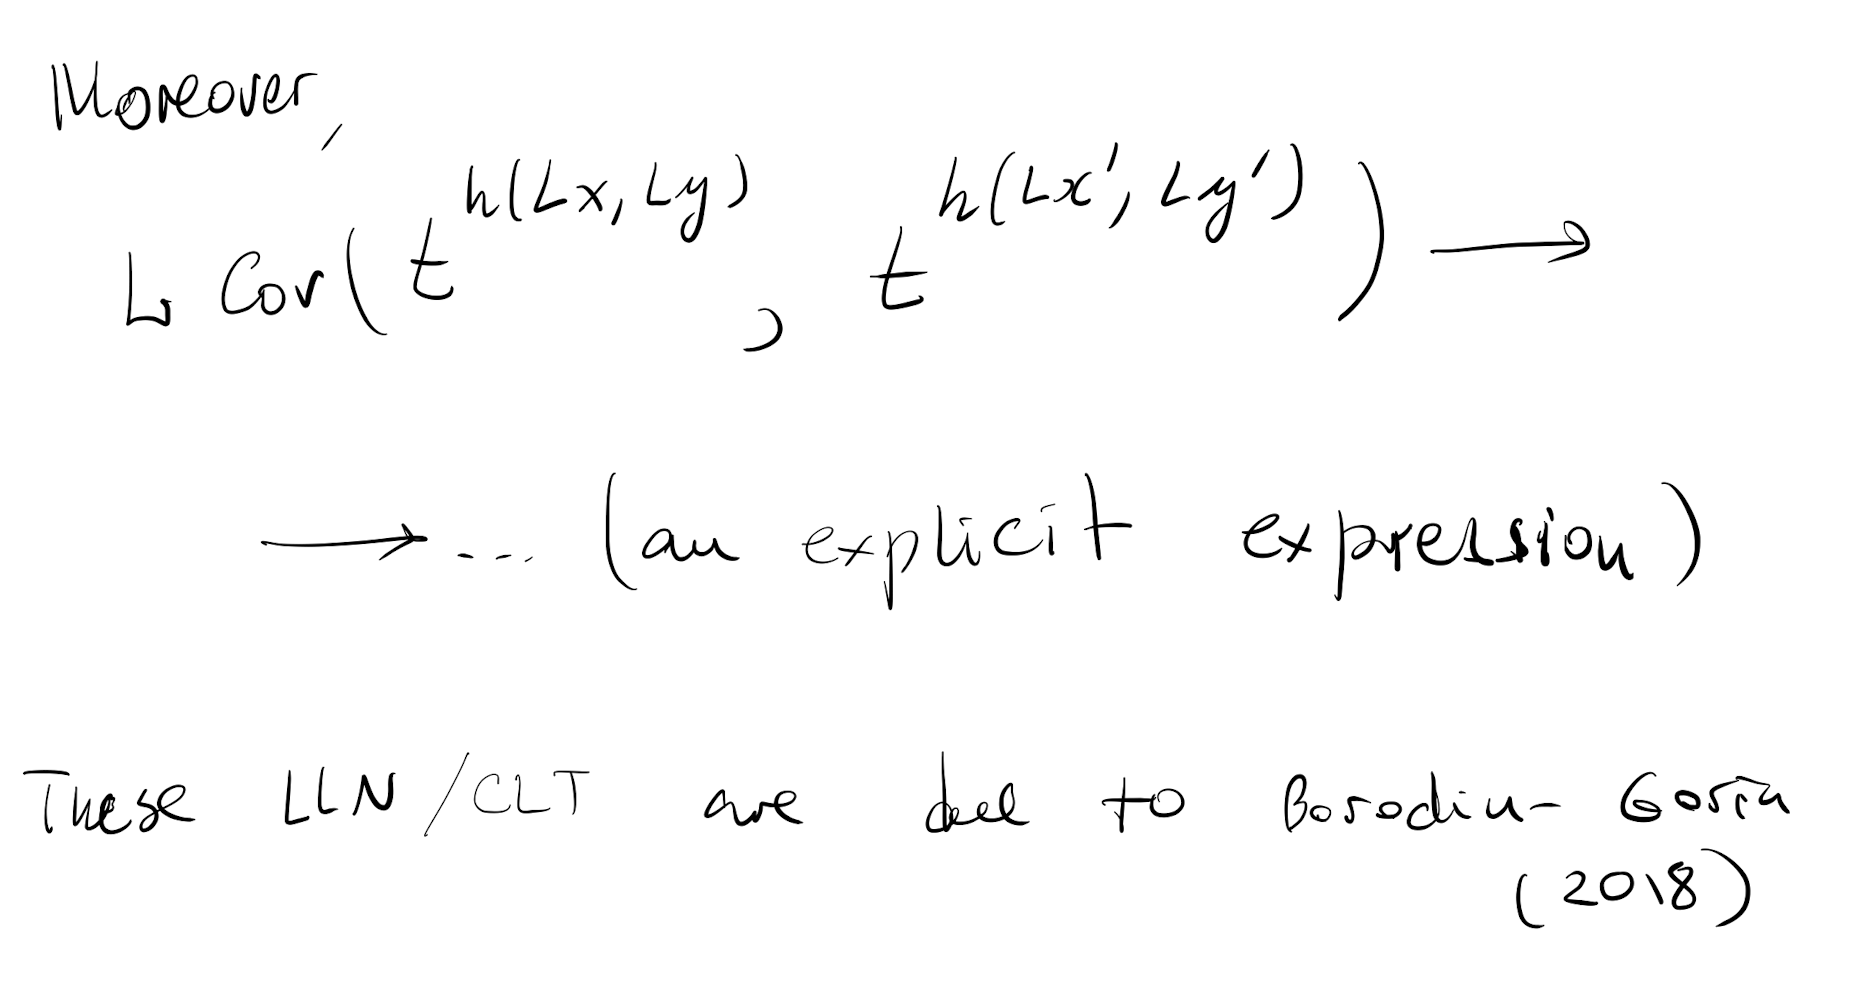 Moreover,
L Cov( t^{h(Lx, Ly)}, t^{h(Lx', Ly')} ) →
→ ... (an explicit expression)
These LLN/CLT are due to Borodin-Gorin
(2018)